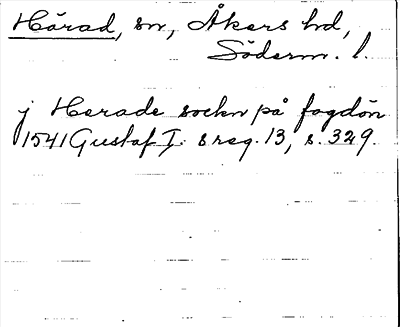 Härad, sn, Åkers hd,
Söderm. l.
j Herade sockn på fogdön
1541 Gustaf I:s reg. 13, s. 329.